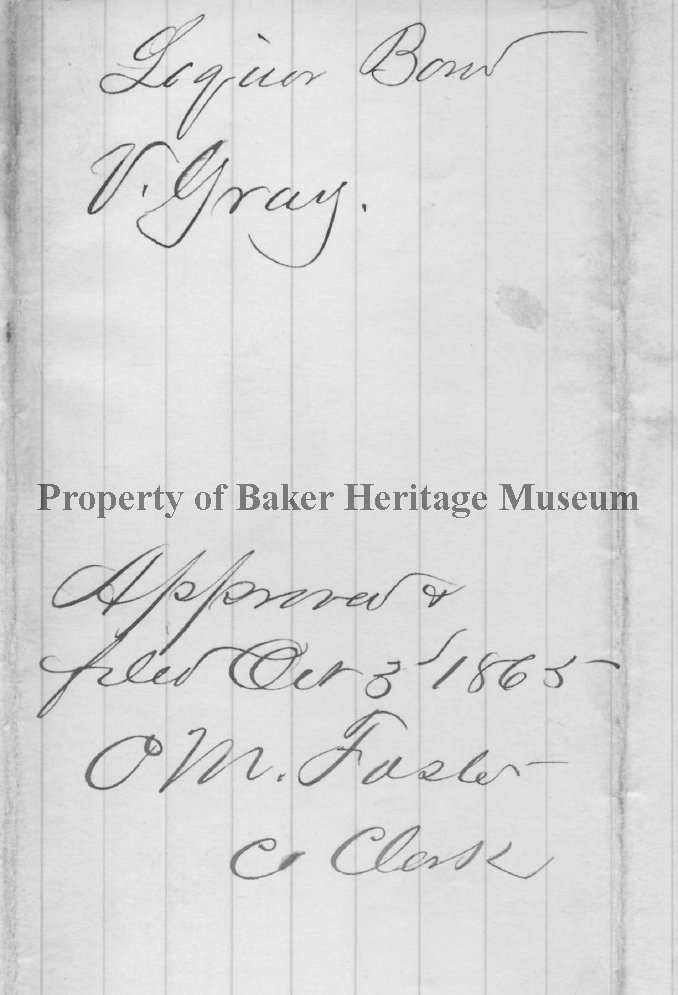 Liquor Bond
V. Gray.
Property of Baker Heritage Museum
Approved &
filed Oct 3d 1865
O M. Foster
Co Clerk